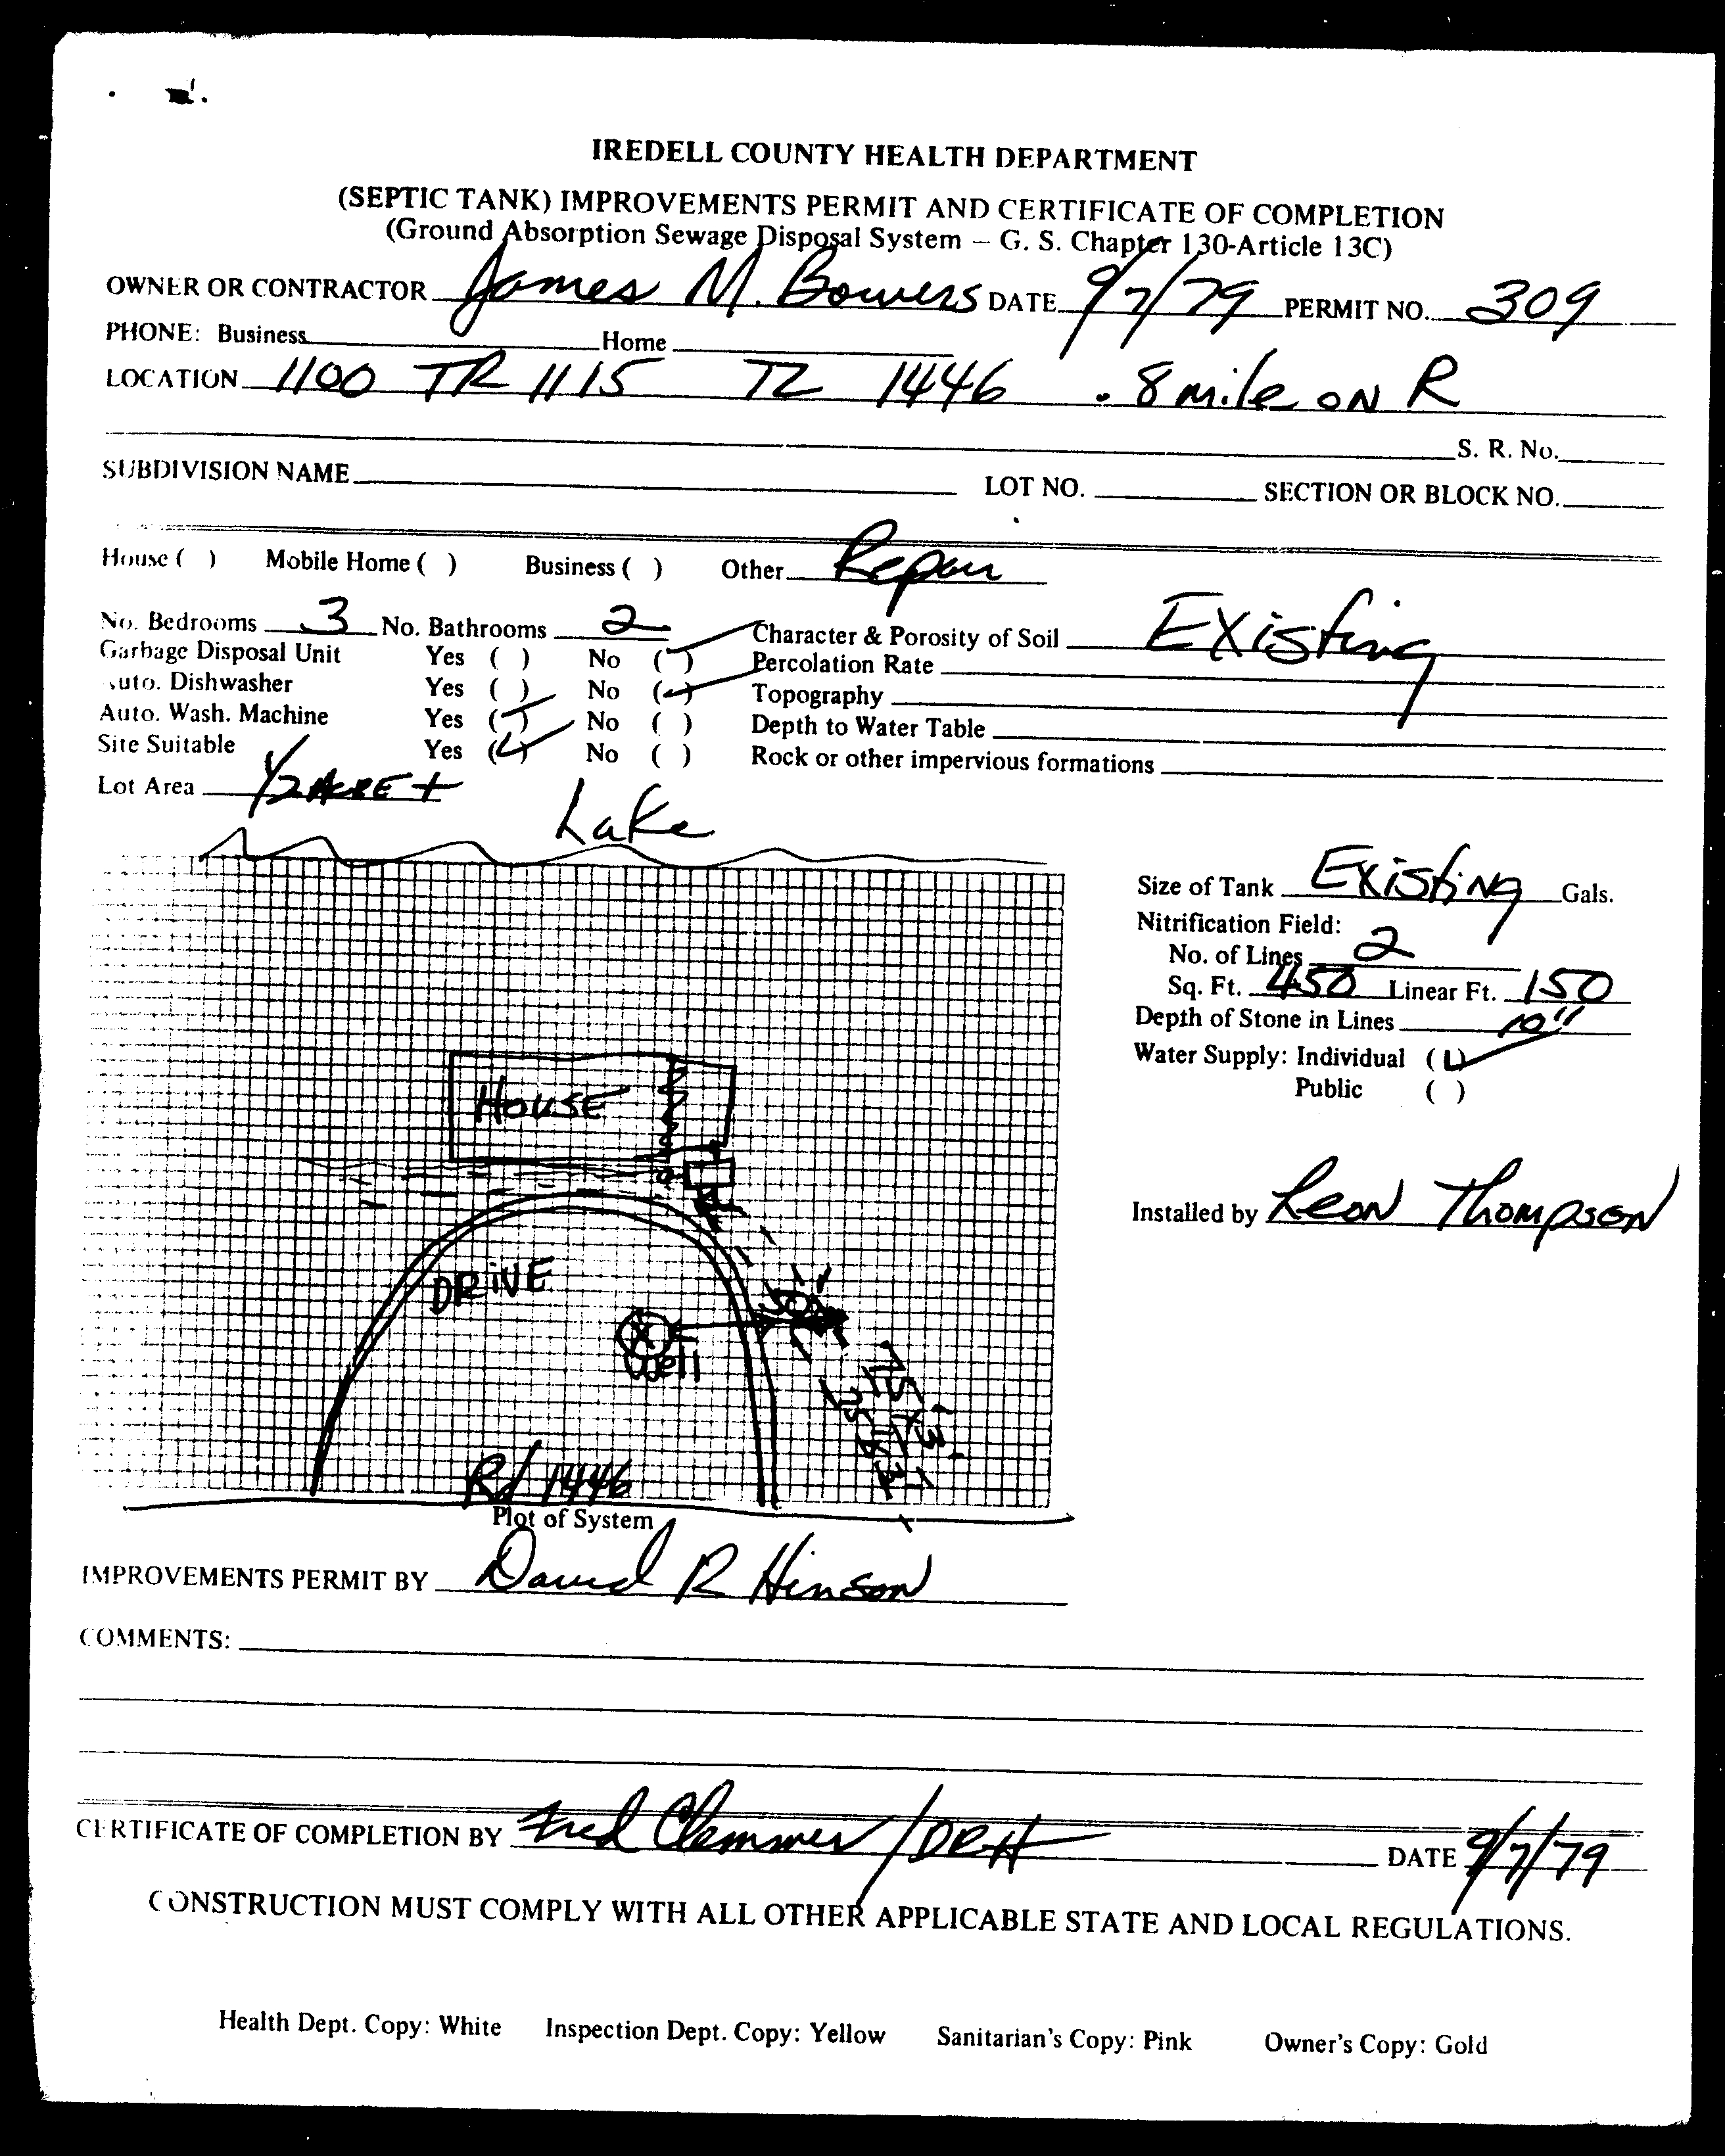 IREDELL COUNTY HEALTH DEPARTMENT
(SEPTIC TANK) IMPROVEMENTS PERMIT AND CERTIFICATE OF COMPLETION
(Ground Absorption Sewage Disposal System – G. S. Chapter 130-Article 13C)
OWNER OR CONTRACTOR James M. Bowers DATE 9/7/79 PERMIT NO. 309
PHONE: Business Home
LOCATION 1100 TR 1115 TL 1446 .8 mile ON R
S. R. No.
SUBDIVISION NAME LOT NO. SECTION OR BLOCK NO.
House ( ) Mobile Home ( ) Business ( ) Other Repair
No. Bedrooms 3 No. Bathrooms 2 Character & Porosity of Soil Existing
Garbage Disposal Unit Yes ( ) No (✓) Percolation Rate
Auto. Dishwasher Yes ( ) No (✓) Topography
Auto. Wash. Machine Yes (✓) No ( ) Depth to Water Table
Site Suitable Yes (✓) No ( ) Rock or other impervious formations
Lot Area 1/2 ACRE +
Lake
Size of Tank Existing Gals.
Nitrification Field:
No. of Lines 2
Sq. Ft. 450 Linear Ft. 150
Depth of Stone in Lines 10"
Water Supply: Individual (✓)
Public ( )
HOUSE
Installed by Leon Thompson
DRIVE
50'
Well
75 x 3
75 x 3
Rd 1446
Plot of System
IMPROVEMENTS PERMIT BY David R Hinson
COMMENTS:
CERTIFICATE OF COMPLETION BY Fred Clemmer / DRH DATE 9/7/79
CONSTRUCTION MUST COMPLY WITH ALL OTHER APPLICABLE STATE AND LOCAL REGULATIONS.
Health Dept. Copy: White Inspection Dept. Copy: Yellow Sanitarian's Copy: Pink Owner's Copy: Gold